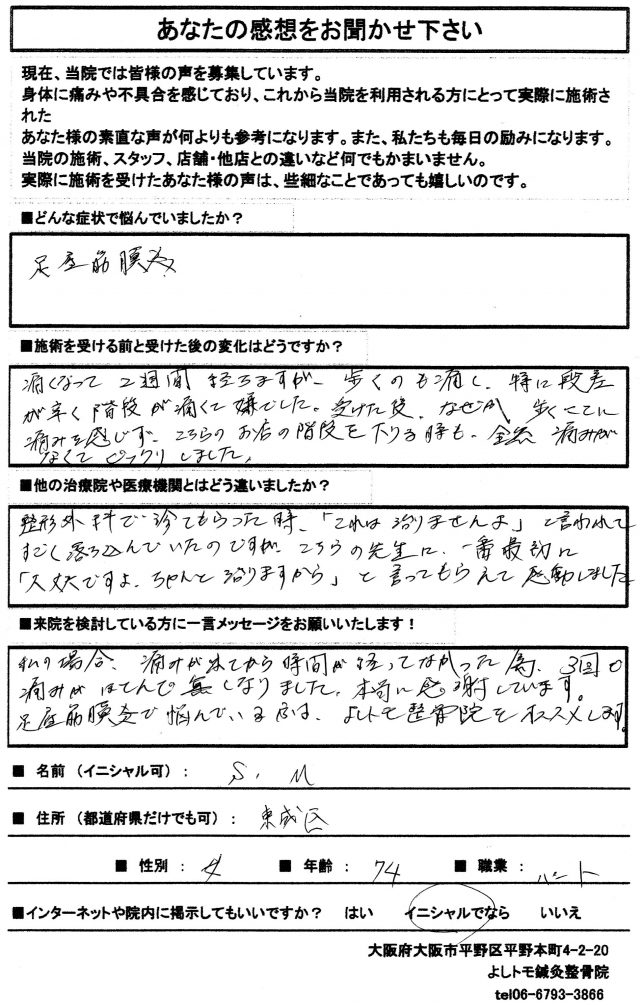 あなたの感想をお聞かせ下さい
現在、当院では皆様の声を募集しています。
身体に痛みや不具合を感じており、これから当院を利用される方にとって実際に施術さ
れた
あなた様の素直な声が何よりも参考になります。また、私たちも毎日の励みになります。
当院の施術、スタッフ、店舗・他店との違いなど何でもかまいません。
実際に施術を受けたあなた様の声は、些細なことであっても嬉しいのです。
■どんな症状で悩んでいましたか？
足底筋膜炎
■施術を受ける前と受けた後の変化はどうですか？
痛くなって2週間経ちますが、歩くのも痛し、特に段差
が辛く階段が痛くて嫌でした。受けた後、なぜか歩くことに
痛みを感じず、こちらのお店の階段を下りる時も、全然痛みが
なくてビックリしました。
■他の治療院や医療機関とはどう違いましたか？
整形外科で診てもらった時、「これは治りませんよ」と言われて
すごく落ち込んでいたのですが、こちらの先生に、一番最初に
「大丈夫ですよ、ちゃんと治りますから」と言ってもらえて感動しました
■来院を検討している方に一言メッセージをお願いいたします！
私の場合、痛みが出てから時間が経ってなかった為、3回で
痛みがほとんど無しなりました。本当に感謝しています。
足底筋膜炎で悩んでいる方は、よしトモ整骨院をオススメします。
■ 名前（イニシャル可）： S. M
■ 住所（都道府県だけでも可）： 東成区
■ 性別： 女 ■ 年齢： 74 ■ 職業： パート
■インターネットや院内に掲示してもいいですか？ はい イニシャルでなら いいえ
大阪府大阪市平野区平野本町4-2-20
よしトモ鍼灸整骨院
tel06-6793-3866